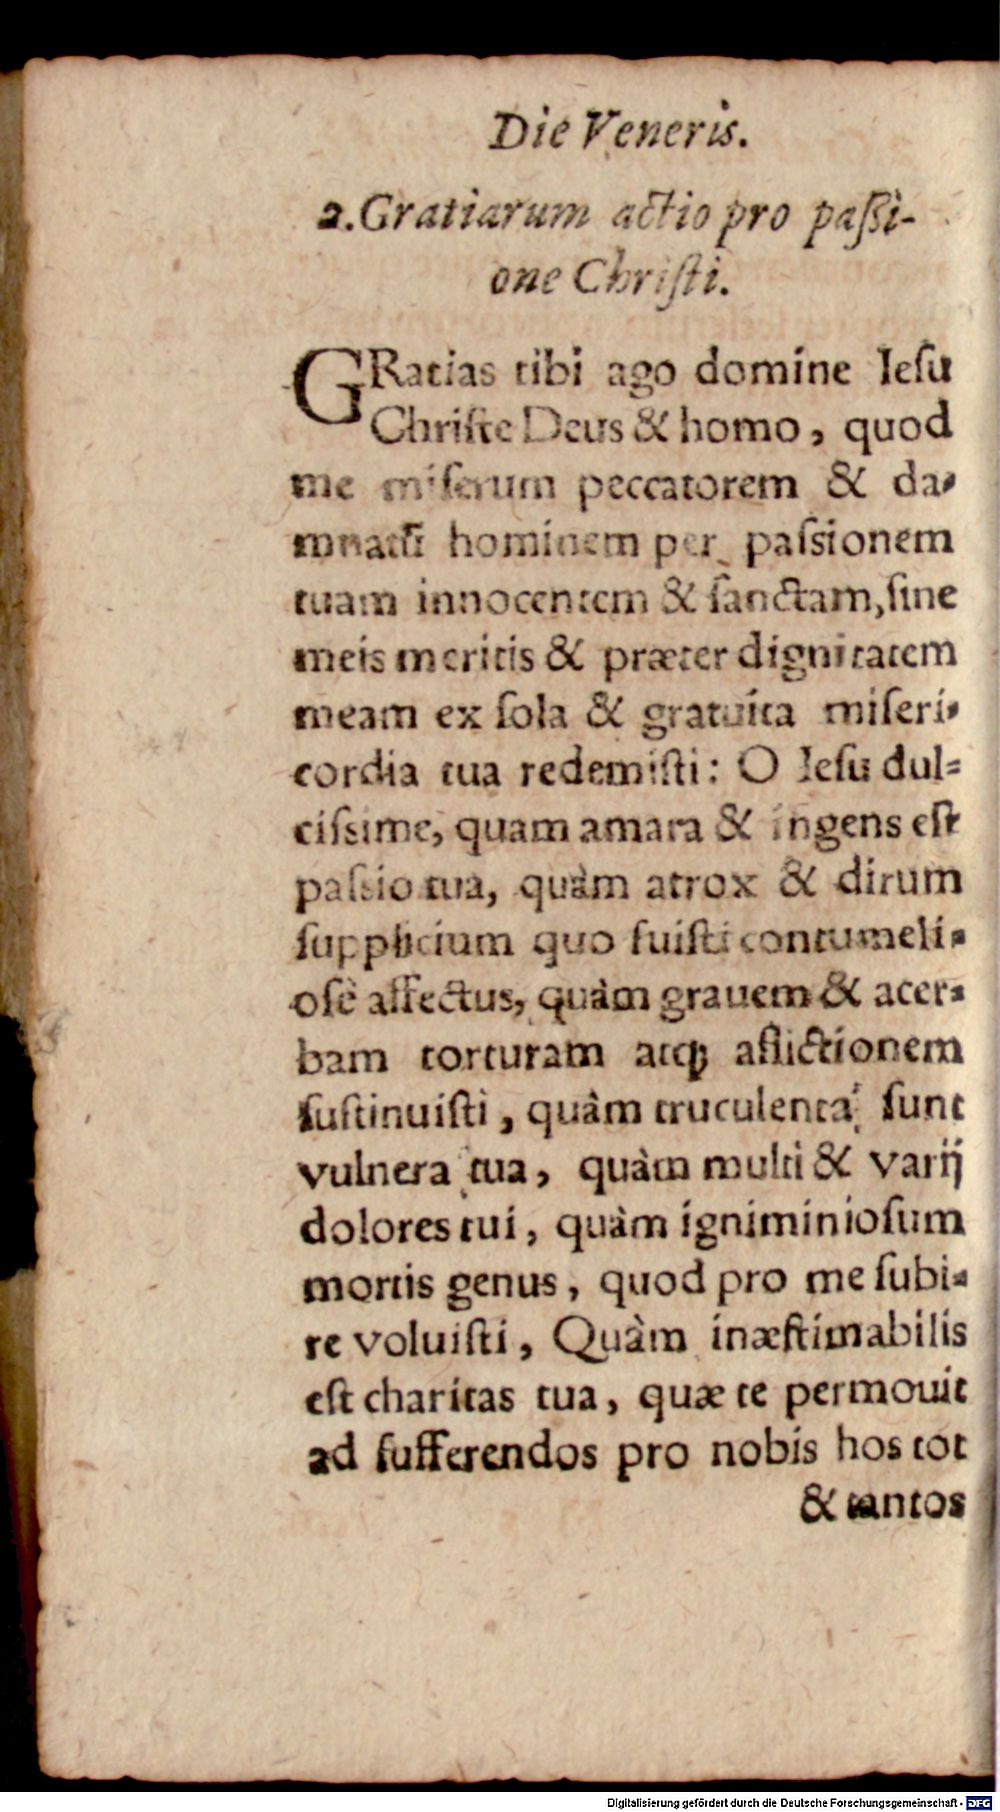 Die Veneris.
2. Gratiarum actio pro paſsi-
one Chriſti.
GRatias tibi ago domine Ieſu
Chriſte Deus & homo, quod
me miſerum peccatorem & da-
mnatũ hominem per paſsionem
tuam innocentem & ſanctam, ſine
meis meritis & præter dignitatem
meam ex ſola & gratuita miſeri-
cordia tua redemiſti: O Ieſu dul-
ciſsime, quam amara & ingens eſt
paſsio tua, quàm atrox & dirum
ſupplicium quo fuiſti contumeli-
oſè affectus, quàm grauem & acer-
bam torturam atq; aflictionem
ſuſtinuiſti, quâm truculenta ſunt
vulnera tua, quàm multi & varij
dolores tui, quàm igniminioſum
mortis genus, quod pro me ſubi-
re voluiſti, Quàm inæſtimabilis
eſt charitas tua, quæ te permouit
ad ſufferendos pro nobis hos tot
& tantos
Digitalisierung gefördert durch die Deutsche Forschungsgemeinschaft - DFG